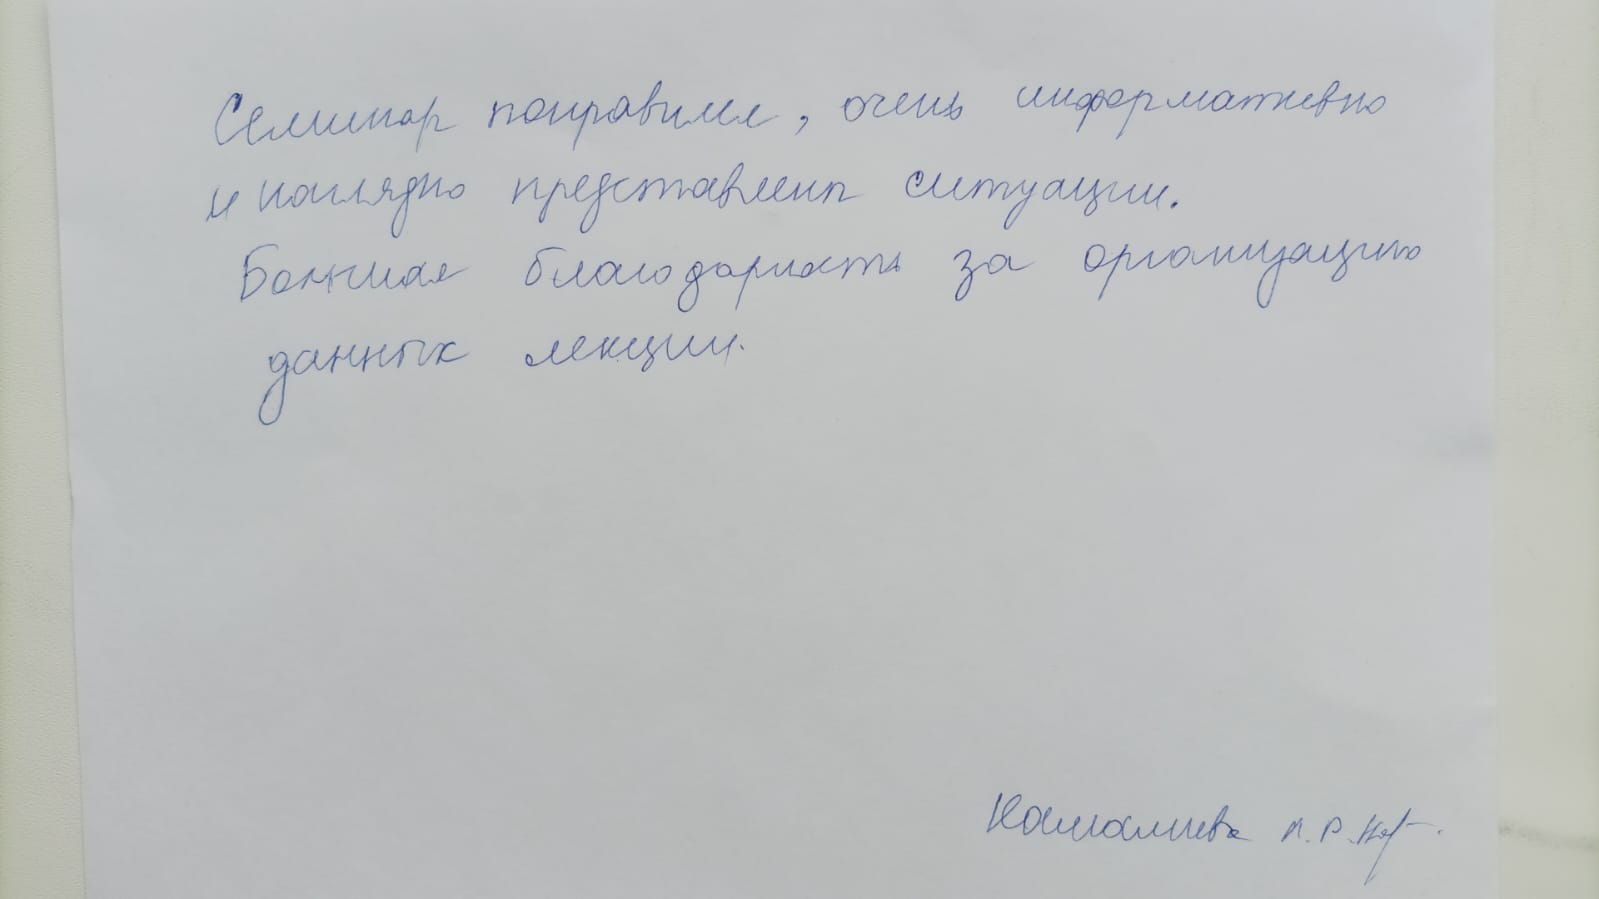 Семинар понравился, очень информативно
и наглядно представлены ситуации.
Большая благодарность за организацию
данных лекции.
Камалиева Л. Р.